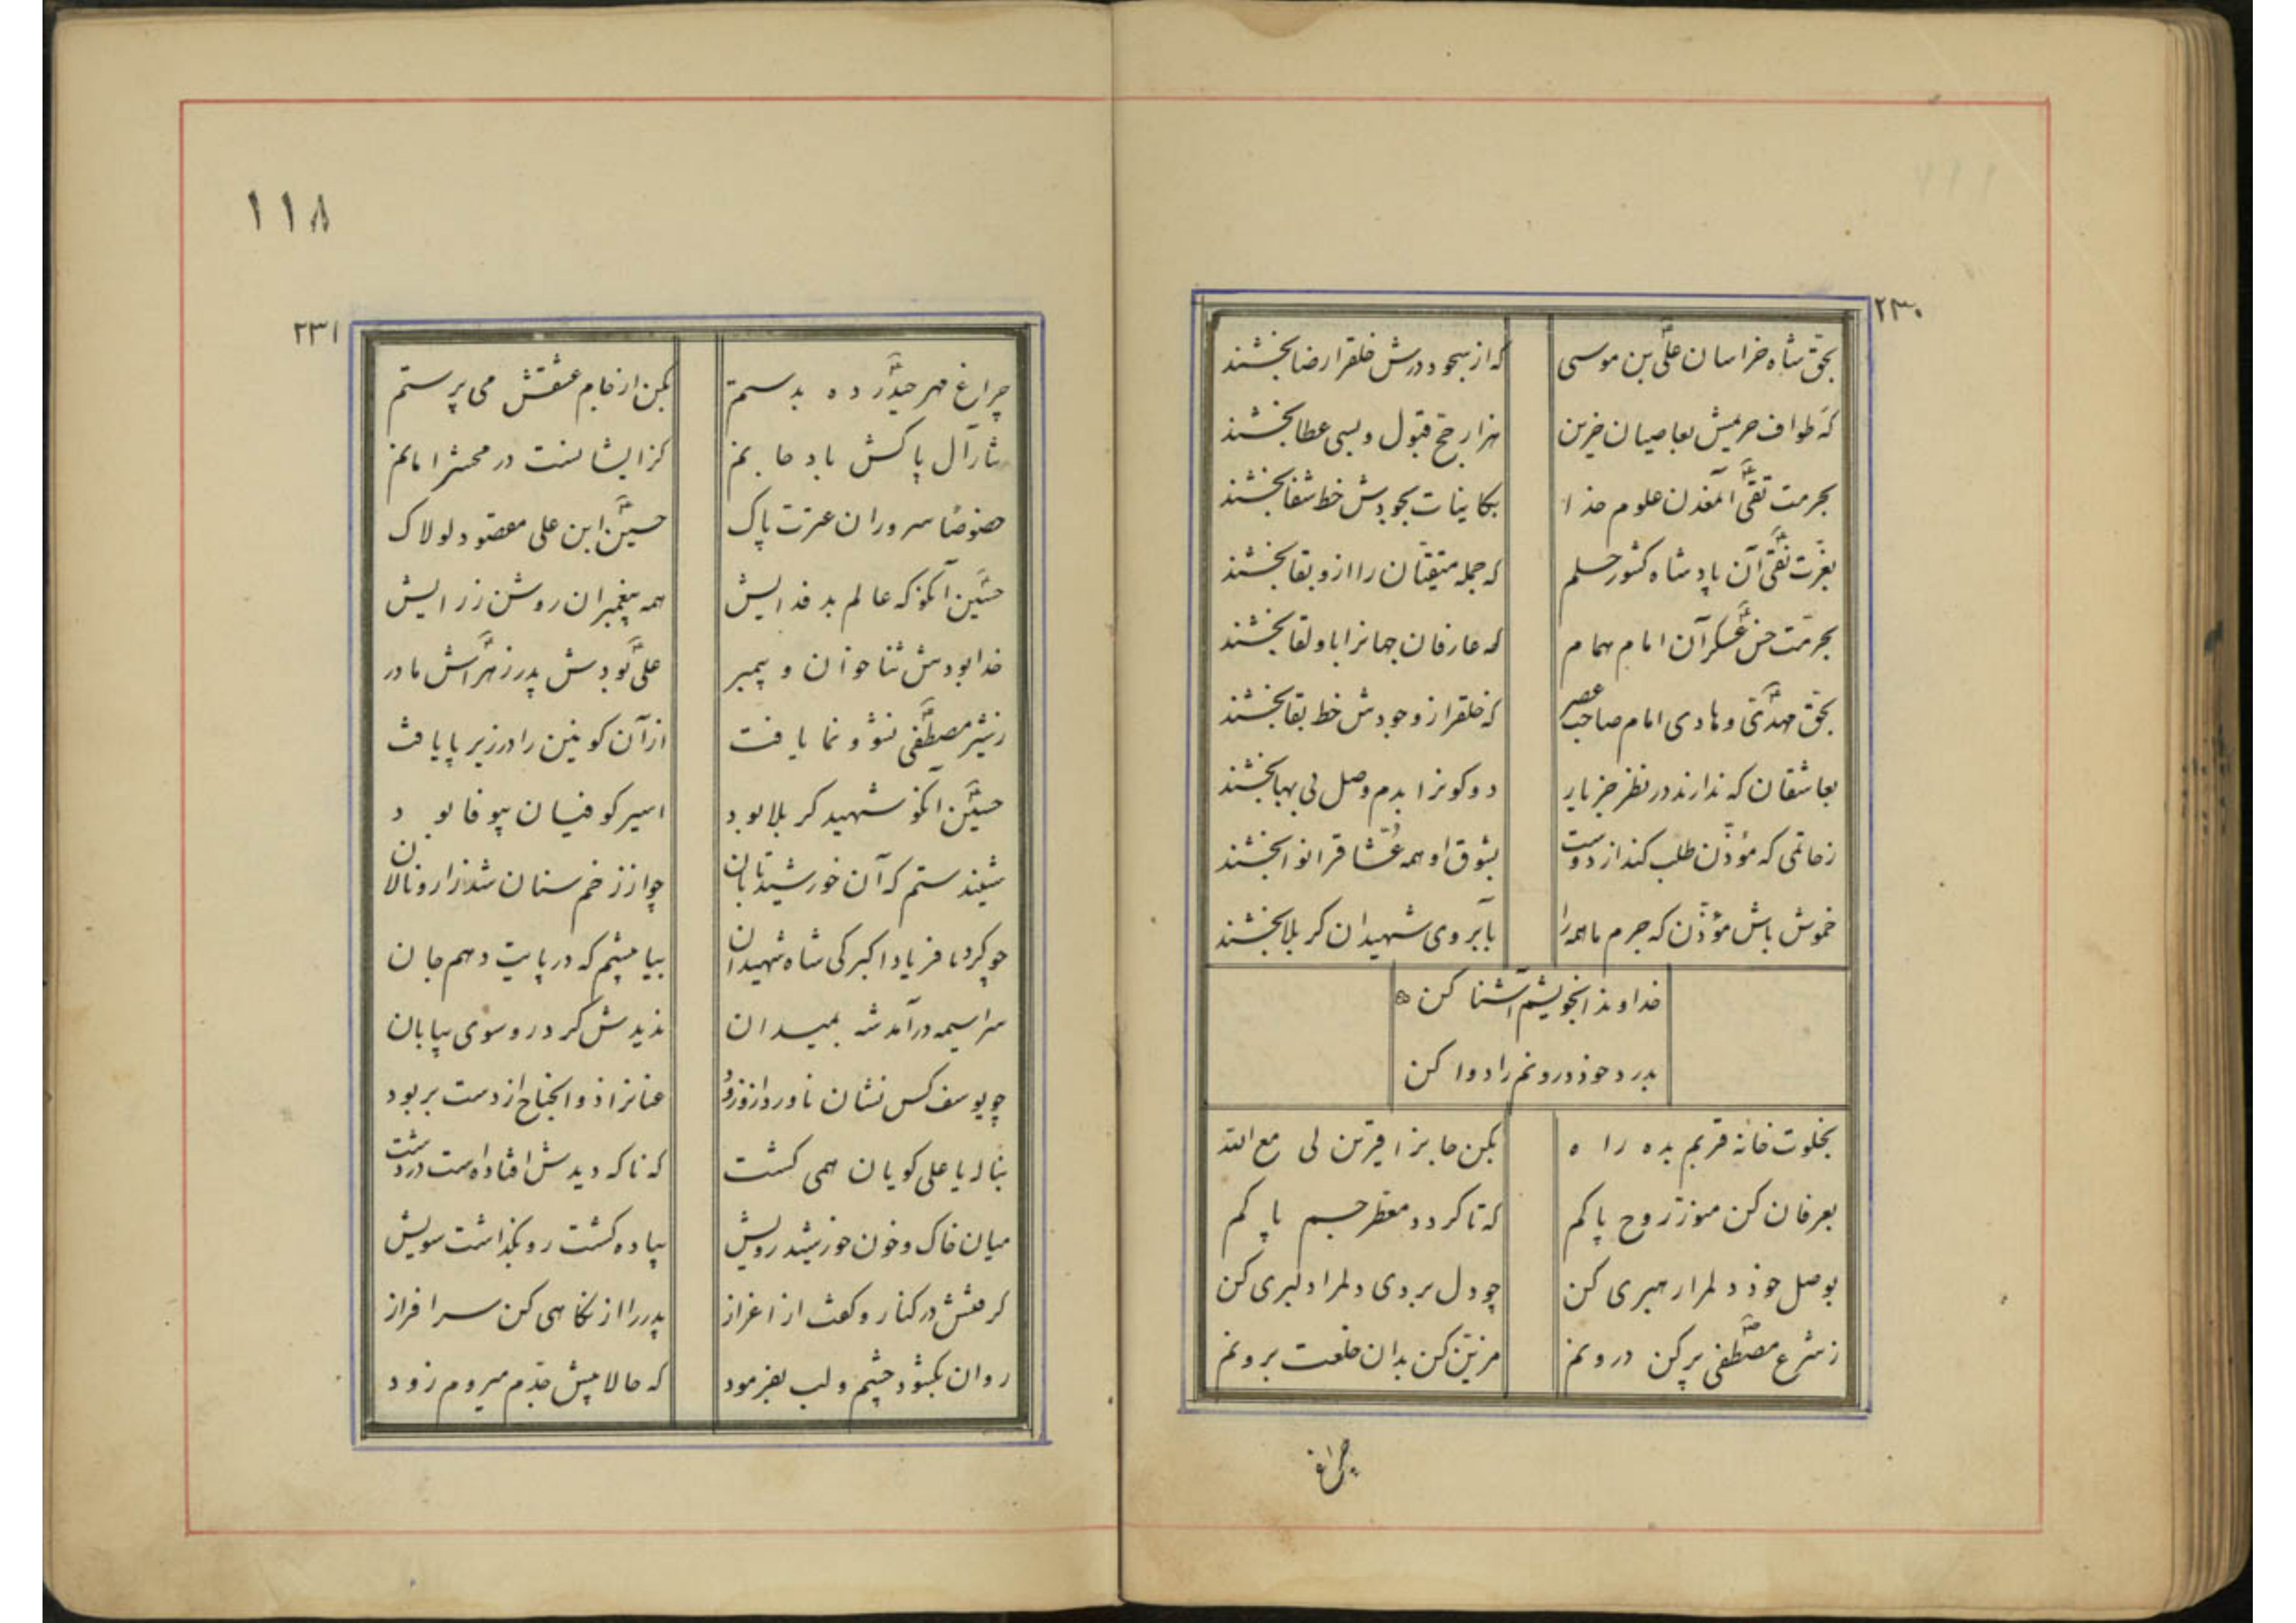 ۲۳۰
بحق شاه خراسان علی بن موسی
که از سجود درش خلقرا رضا بخشند
که طواف حریمش بعاصیان حزین
هزار حج قبول و بسی عطا بخشند
بحرمت تقی آنمعدن علوم خدا
بکاینات بجودش خط شفا بخشند
بعزت نقی آن پادشاه کشور حلم
که جمله متقیان را ازو بقا بخشند
بحرمت حسن عسکر آن امام همام
که عارفان جهانرا باو لقا بخشند
بحق مهدی و هادی امام صاحب عصر
که خلقرا ز وجودش خط بقا بخشند
بعاشقان که ندارند در نظر جز یار
دو کونرا بدم وصل بی بها بخشند
ز حاتمی که مؤذن طلب کند از دوست
بشوق او همه عشاقرا نوا بخشند
خموش باش مؤذن که جرم ما همه را
بآبروی شهیدان کربلا بخشند
خداوندا بخویشم آشنا کن
بدرد خود درونم را دوا کن
بخلوت خانه قربم بده راه
بکن جانرا قرین لی مع الله
بعرفان کن منور روح پاکم
که تا کردد معطر جسم پاکم
بوصل خود دلمرا رهبری کن
چو دل بردی دلمرا دلبری کن
ز شرع مصطفی پر کن درونم
مزین کن بدان خلعت برونم
چراغ
۱۱۸
۲۳۱
چراغ مهر حیدر ده بدستم
بکن از جام عشقش می پرستم
نثار آل پاکش باد جانم
کز ایشانست در محشر امانم
خصوصا سروران عترت پاک
حسین ابن علی مقصود لولاک
حسین آنکو که عالم بد فدایش
همه پیغمبران روشن ز رایش
خدا بودش ثنا خوان و پیمبر
علی بودش پدر زهراش مادر
ز شیر مصطفی نشو و نما یافت
از آن کونین را در زیر پا یافت
حسین آنکو شهید کربلا بود
اسیر کوفیان بیوفا بود
شنیدستم که آن خورشید تابان
چو از زخم سنان شد زار و نالان
چو کرد فریاد اکبر کی شاه شهیدان
بیا پیشم که در پایت دهم جان
سراسیمه درآمد شه بمیدان
ندیدش کرد رو سوی بیابان
چو یوسف کس نشان ناورد از و زود
عنانرا ذوالجناح از دست بربود
بناله یا علی کویان همی کشت
که ناکه دیدش افتاده است در دشت
میان خاک و خون خورشید رویش
پیاده کشت رو بکذاشت سویش
کرفتش در کنار و کفت از اعزاز
پدر را از نکاهی کن سرافراز
روان بکشود چشم و لب بفرمود
که حالا پیش جدم میروم زود